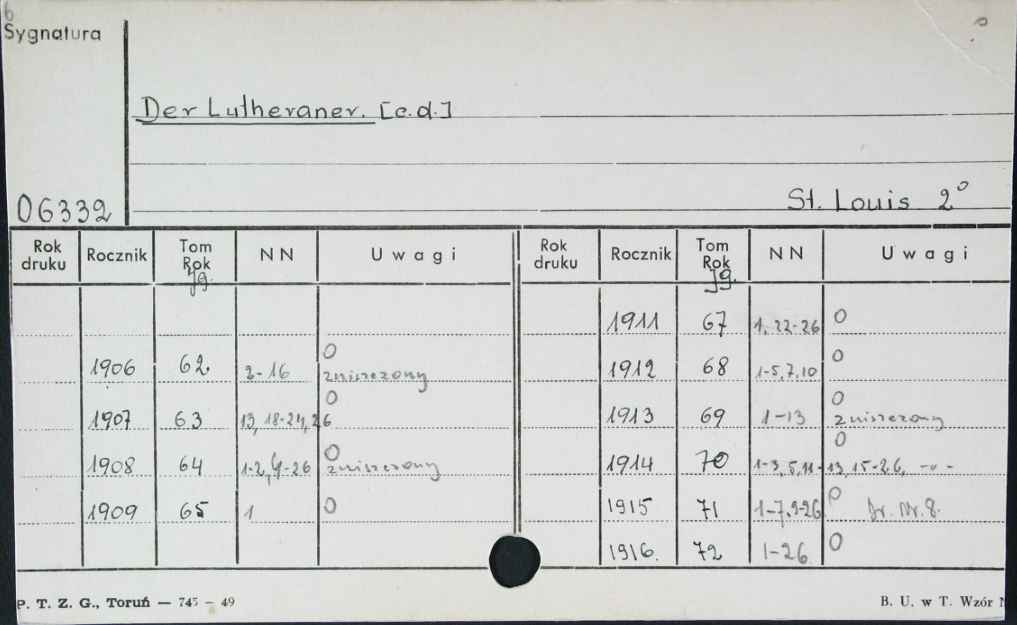 6
Sygnatura
Der Lutheraner. [c.d.]
06332
St. Louis 2°
Rok druku Rocznik Tom Rok Jg. NN Uwagi Rok druku Rocznik Tom Rok Jg. NN Uwagi
1911 67 1, 22-26 0
1906 62. 2-16 0 zniszczony 1912 68 1-5,7,10 0
1907 63 13, 18-24, 26 0 1913 69 1-13 0 zniszczony
1908 64 1-2, 4-26 0 zniszczony 1914 70 1-3, 5, 11-13, 15-26, 0 -"-
1909 65 1 0 1915 71 1-7, 9-26 0 Nr. 8.
1916. 72 1-26 0
P. T. Z. G., Toruń — 745 - 49
B. U. w T. Wzór